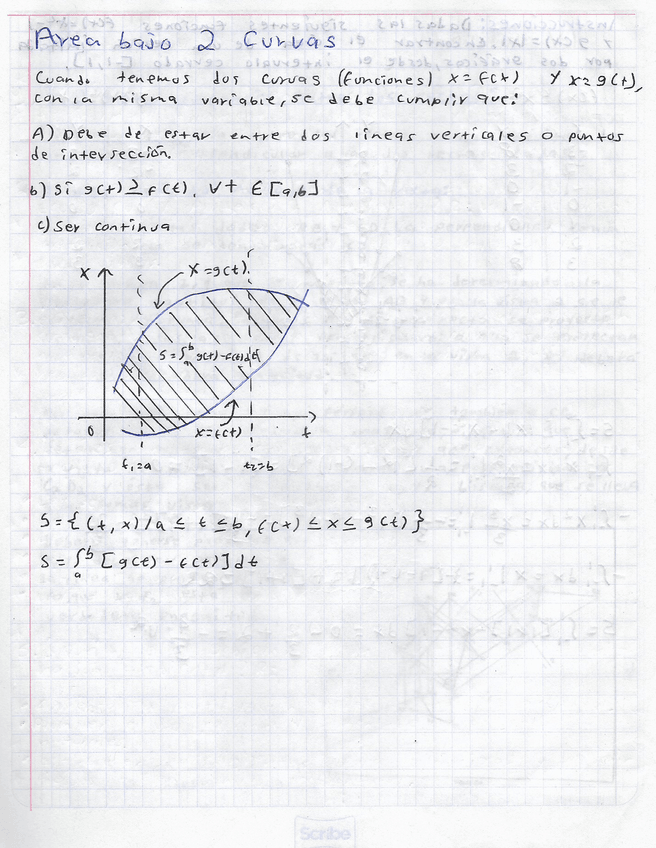 Area bajo 2 Curvas
Cuando tenemos dos curvas (funciones) x=f(t) y x=g(t),
con la misma variable, se debe cumplir que:
A) Debe de estar entre dos lineas verticales o puntos
de intersección.
b) Si g(t) ≥ f(t), ∀t ∈ [a,b]
c) Ser continua
x
x=g(t)
S=∫ₐᵇ g(t)-f(t)dt
0
x=f(t)
t
t₁=a
t₂=b
S={(t,x)/a ≤ t ≤ b, f(t) ≤ x ≤ g(t)}
S=∫ₐᵇ [g(t)-f(t)]dt
Scribe